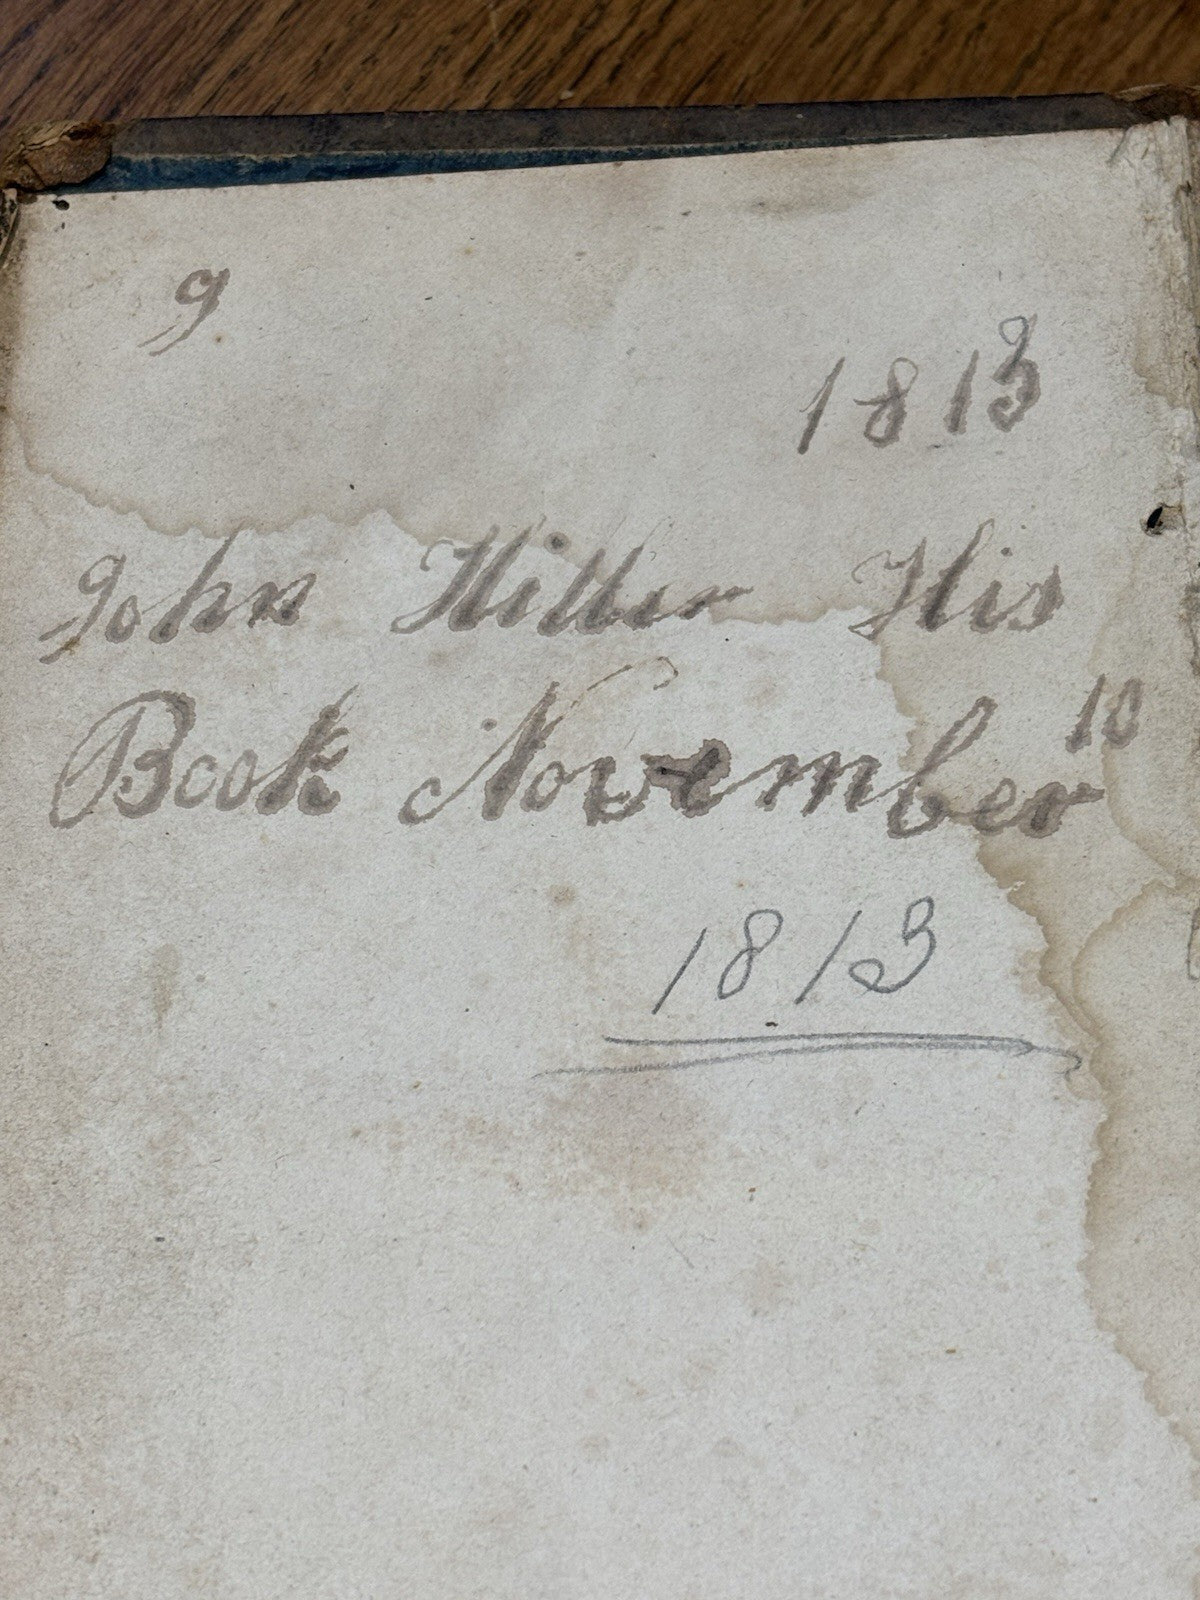 9
1813
John Hiller His
Book November 10
1813